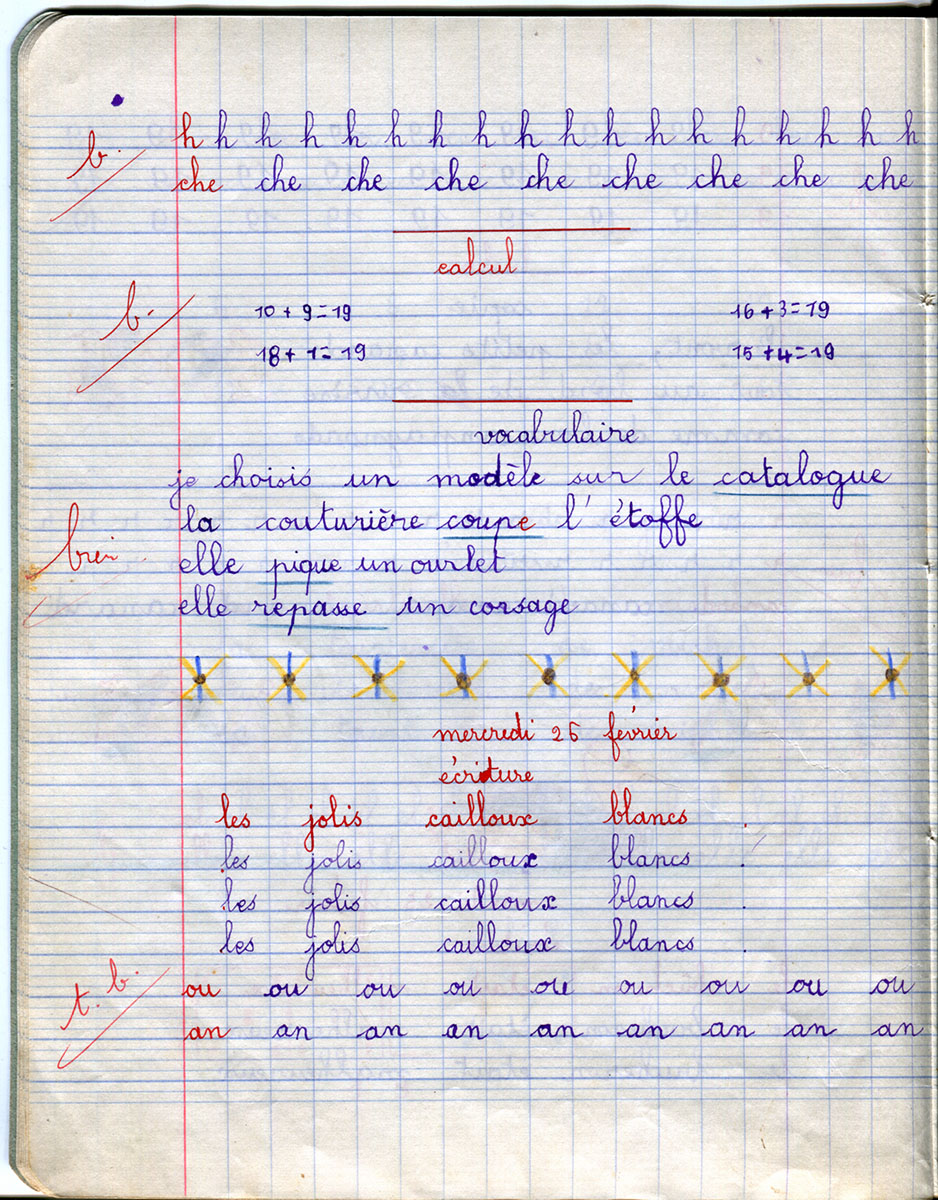 b. h h h h h h h h h h h h h h h h h h
che che che che che che che che che
calcul
b. 10 + 9 = 19 16 + 3 = 19
18 + 1 = 19 15 + 4 = 19
vocabulaire
je choisis un modèle sur le catalogue
la couturière coupe l' étoffe
bien elle pique un ourlet
elle repasse un corsage
mercredi 26 février
écriture
les jolis cailloux blancs .
les jolis cailloux blancs .
les jolis cailloux blancs .
les jolis cailloux blancs .
t.b. ou ou ou ou ou ou ou ou ou
an an an an an an an an an